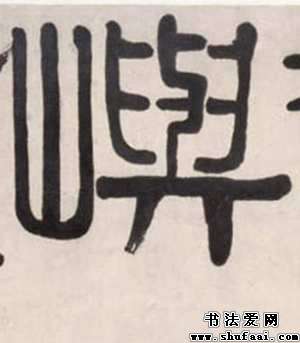 嶼
书法爱网
www.shufaai.com